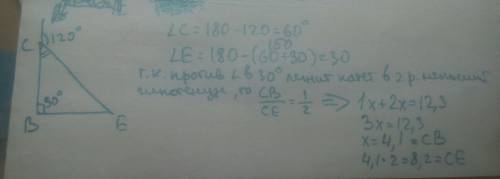 C
120°
90°
B
E
∠C = 180 - 120 = 60°
150
∠E = 180 - (60+90) = 30
т.к. против ∠ в 30° лежит катет в 2 р. меньший
гипотенузе, то CB/CE = 1/2 ⇒ 1x + 2x = 12,3
3x = 12,3
x = 4,1 = CB
4,1 · 2 = 8,2 = CE